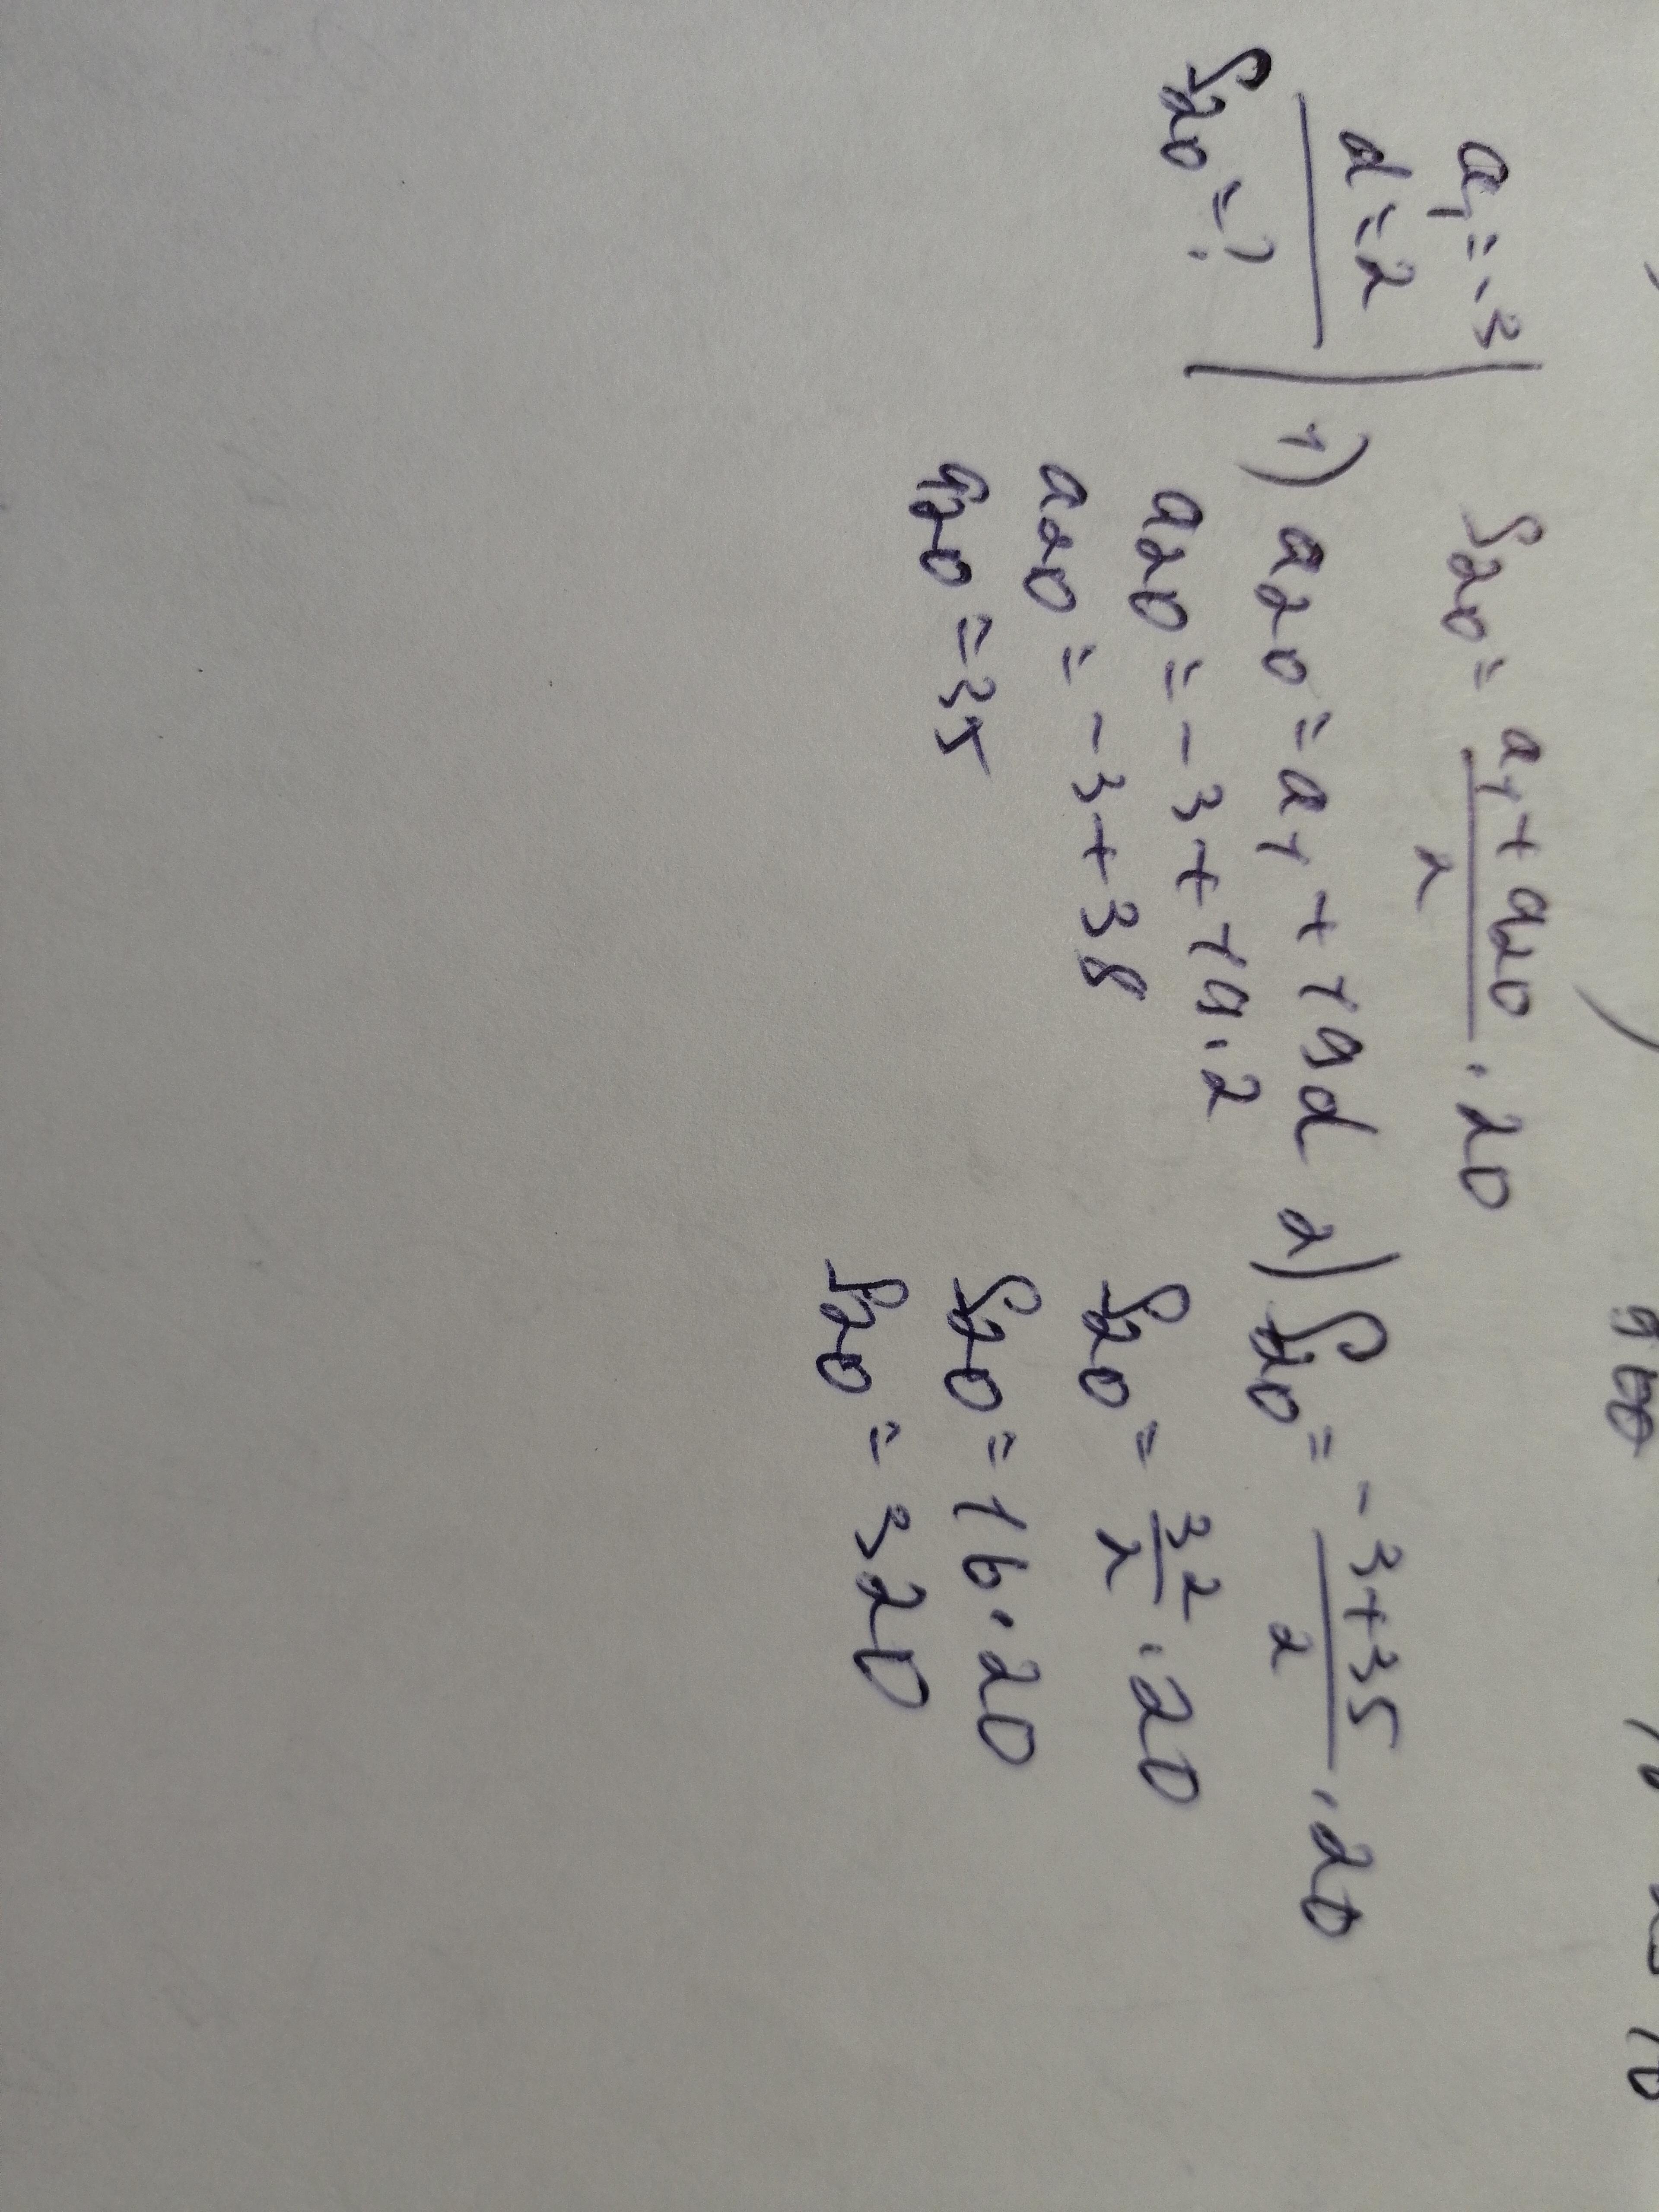 a₁ = -3
d = 2
S₂₀ = ?
S₂₀ = (a₁ + a₂₀)/2 · 20
1) a₂₀ = a₁ + 19d
a₂₀ = -3 + 19 · 2
a₂₀ = -3 + 38
a₂₀ = 35
2) S₂₀ = (-3 + 35)/2 · 20
S₂₀ = 32/2 · 20
S₂₀ = 16 · 20
S₂₀ = 320